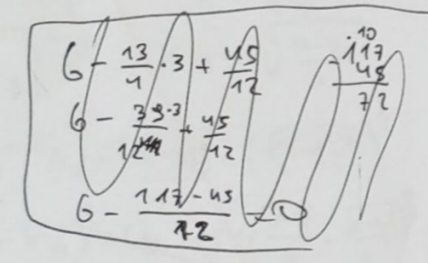 6 - 13/4 · 3 + 45/12
6 - 39·3/12 + 45/12
6 - 117-45/12 = 0
10
117
45
72